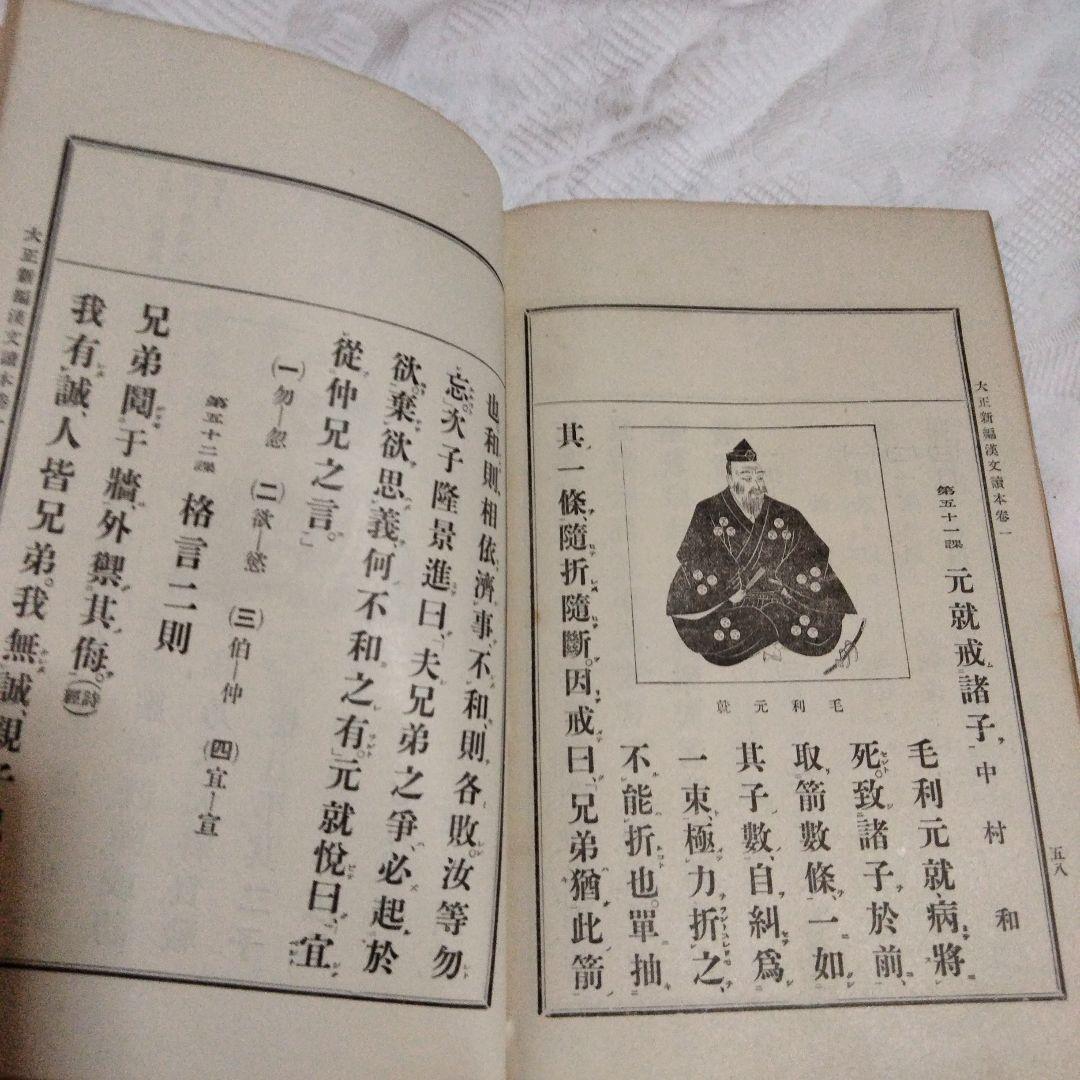 大正新編漢文讀本卷一
五八
第五十一課　元就戒諸子　中村和
毛利元就
毛利元就、病將
死。致諸子於前、
取箭數條、一如
其子數、自糾爲
一束、極力折之、
不能折也。單抽
其一條、隨折隨斷。因戒曰、兄弟猶此箭
也。和則相依濟事、不和則各敗。汝等勿
忘。次子隆景進曰、夫兄弟之爭、必起於
欲。棄欲思義、何不和之有。元就悅曰、宜
從仲兄之言。」
(一)勿—忽　(二)欲—慾　(三)伯—仲　(四)宜—宣
第五十二課　格言二則
兄弟鬩于牆、外禦其侮。(詩經)
我有誠、人皆兄弟。我無誠、親子
大正新編漢文讀本卷一